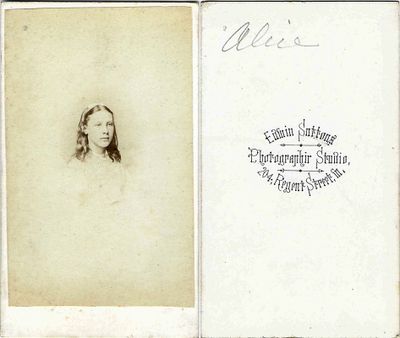 Alice
Edwin Sutton's
Photographic Studio,
204, Regent Street, W.